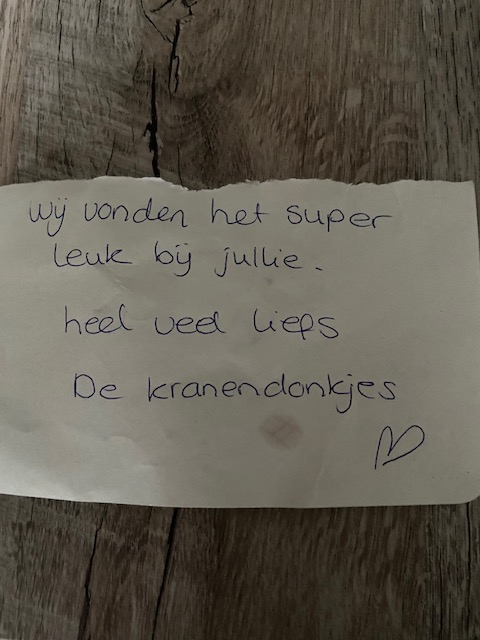 wij vonden het super
leuk bij jullie.
heel veel liefs
De kranendonkjes